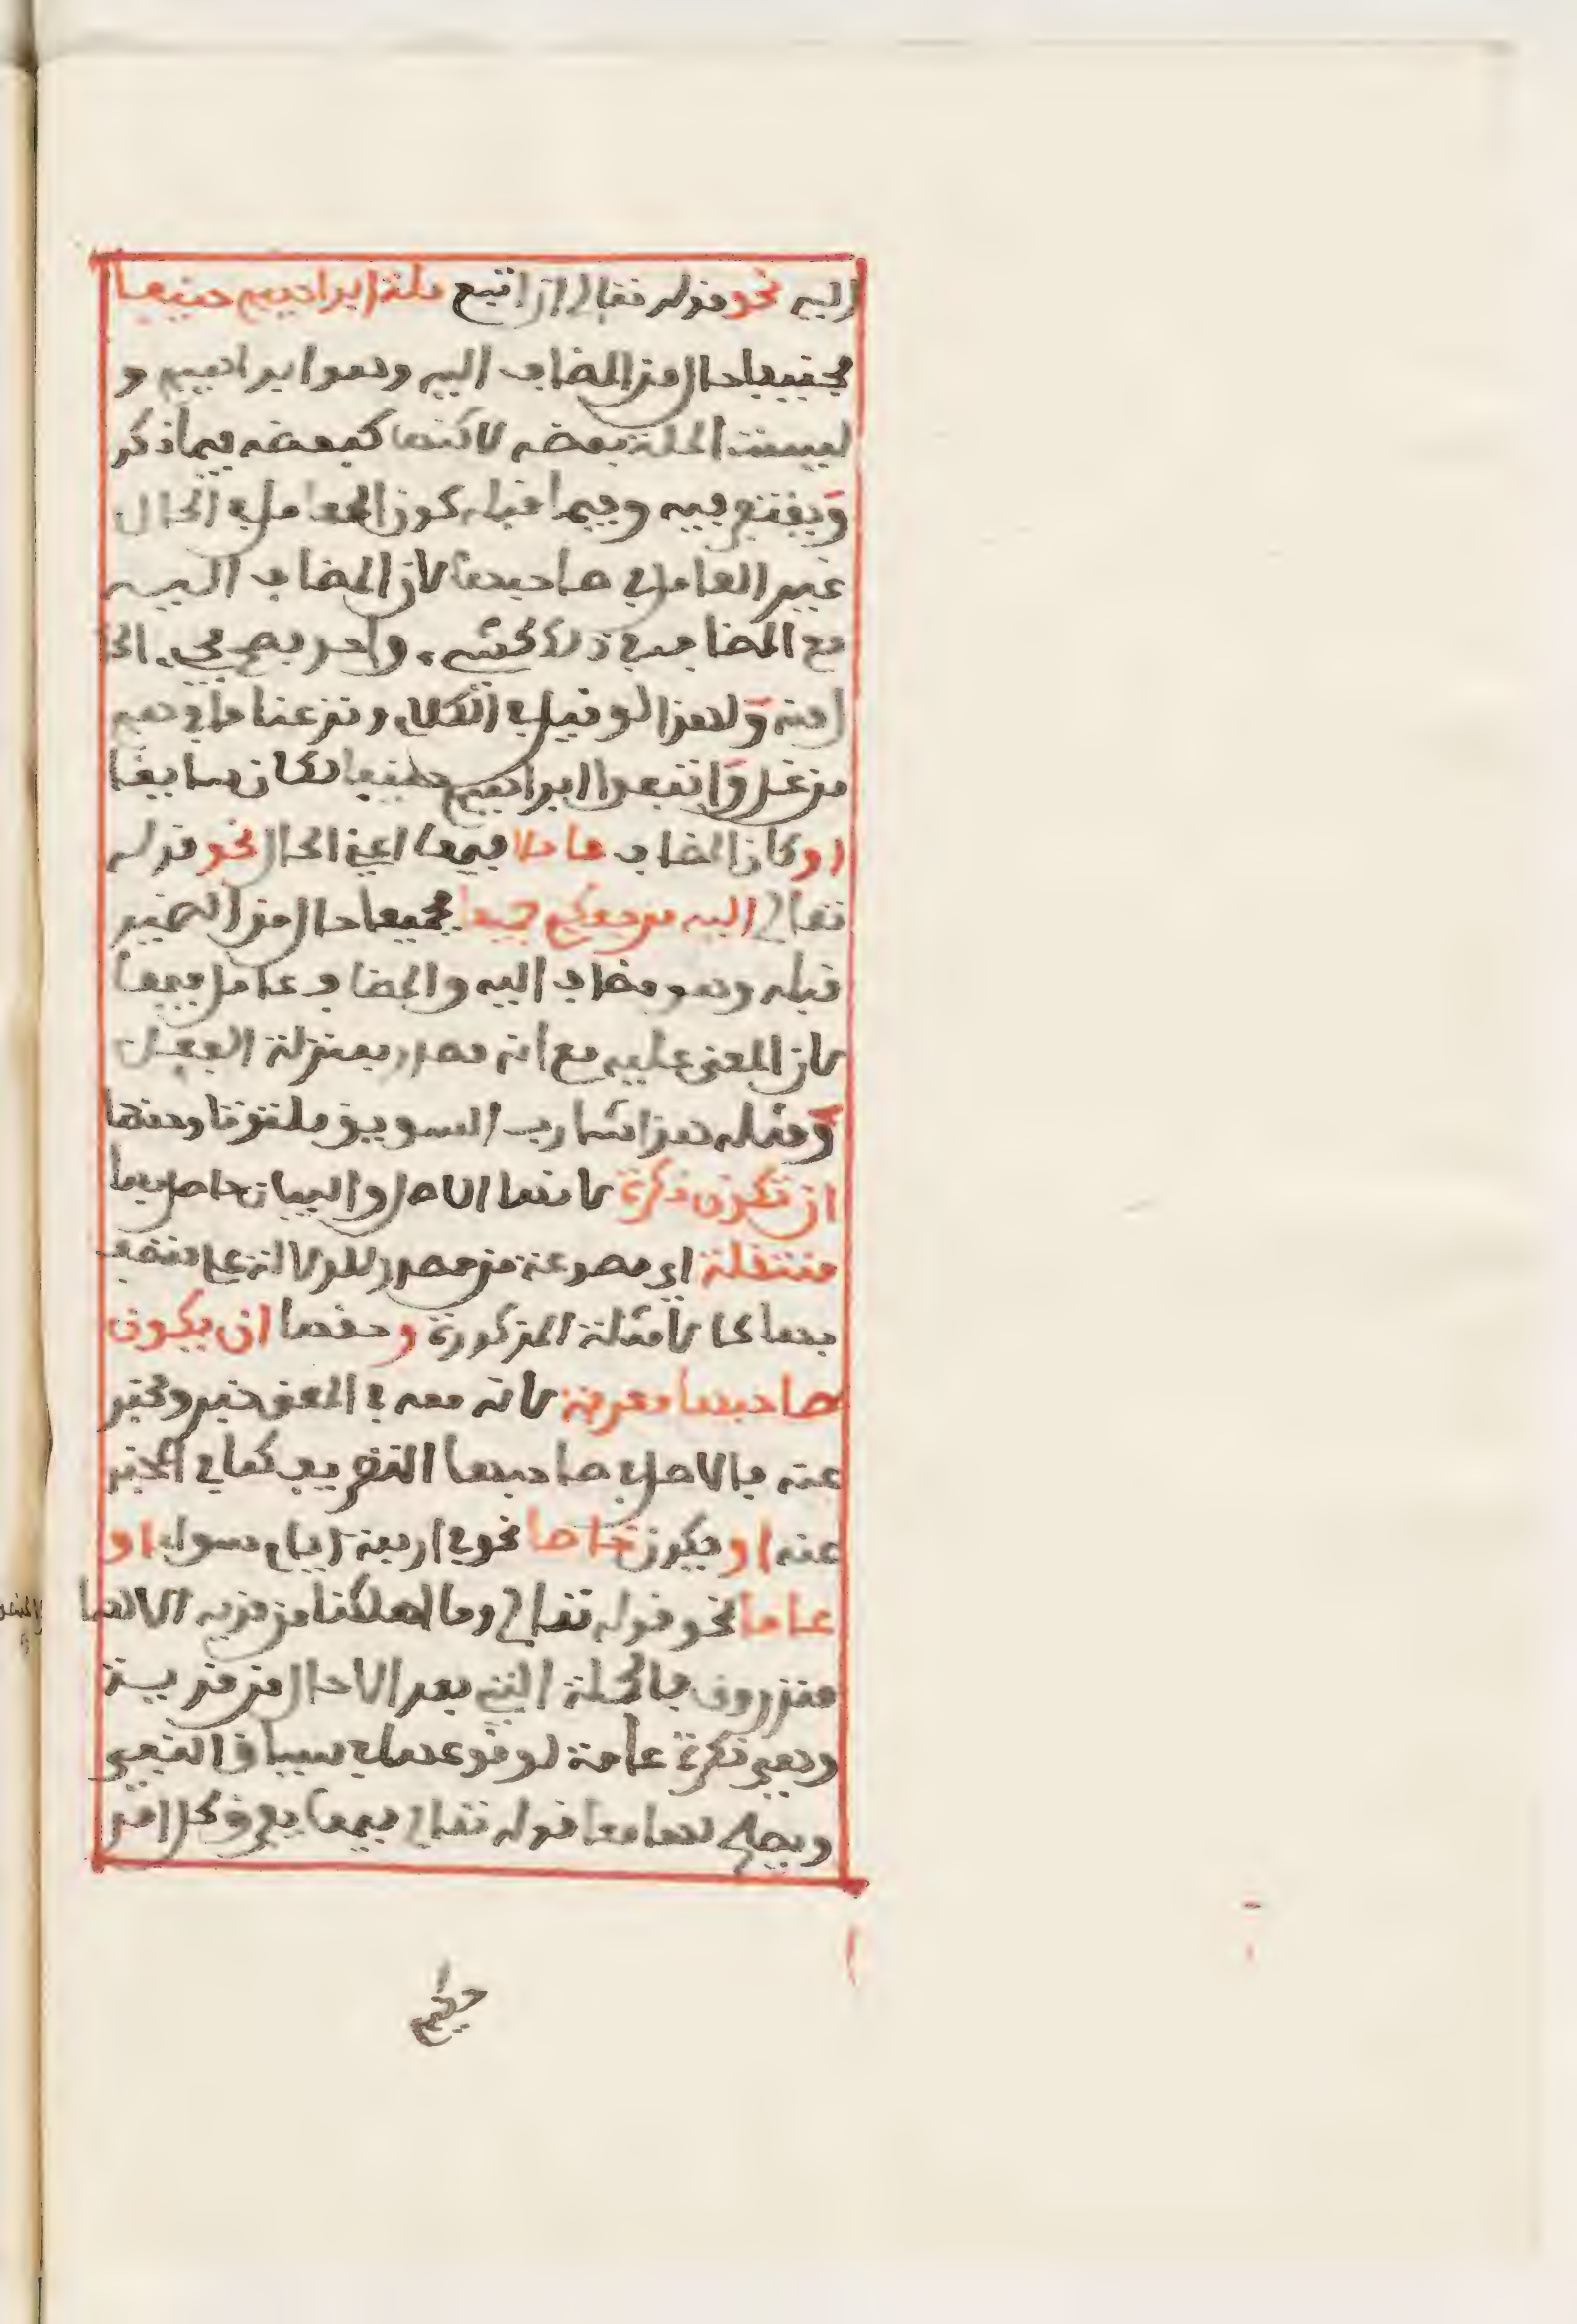 اليه نحو قوله تعالى ان اتبع ملة ابراهيم حنيفا
فحنيفا حال من المضاف اليه وهو ابراهيم و
ليست الملة بعضه لاكنها كبعضه فيما ذكر
ويفتنع فيه وفيما قبله كون العامل في الحال
غير العامل في صاحبها لان المضاف اليه
مع المضاف في ذلك كشيء واحد يصح مجيء الحا
ل منه ولهذا لو قيل في الكلام ونزعنا ما فيهم
من غل واتبعوا ابراهيم حنيفا لكان سايغا
او كان المضاف عاملا فيها اعني الحال نحو قوله
تعالى اليه مرجعكم جميعا فجميعا حال من الضمير
قبله وهو مضاف اليه والمضاف عامل فيها
لان المعنى عليه مع انه مصدر بمنزلة الفعل
ومثله هذا شارب السويق ملتوتا وحقها
ان تكون نكرة لانها الاصل والبيان حاصل بها
منتقلة اي مصوغة من مصدر للدلالة على متصف
بها كالامثلة المذكورة وحقها ان يكون
صاحبها معرفة لانه معه في المعنى خبر ومخبر
عنه فالاصل في صاحبها التعريف كما في المخبر
عنه او يكون خاصا نحو في اربعة ايام سواء او
عاما نحو قوله تعالى وما اهلكنا من قرية الا لها
منذرون فالجملة التي بعد الا حال من قرية
وهي نكرة عامة لوقوعها في سياق النفي
ويصلح لهما معا قوله تعالى فيها يفرق كل امر
حكيم